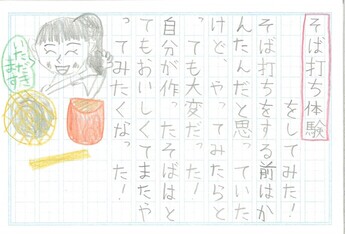 そば打ち体験
をしてみた！
そば打ちをする前はか
んたんだと思っていた
けど、やってみたらと
っても大変だった！
自分が作ったそばはと
てもおいしくてまたや
ってみたくなった！
いただき
ます